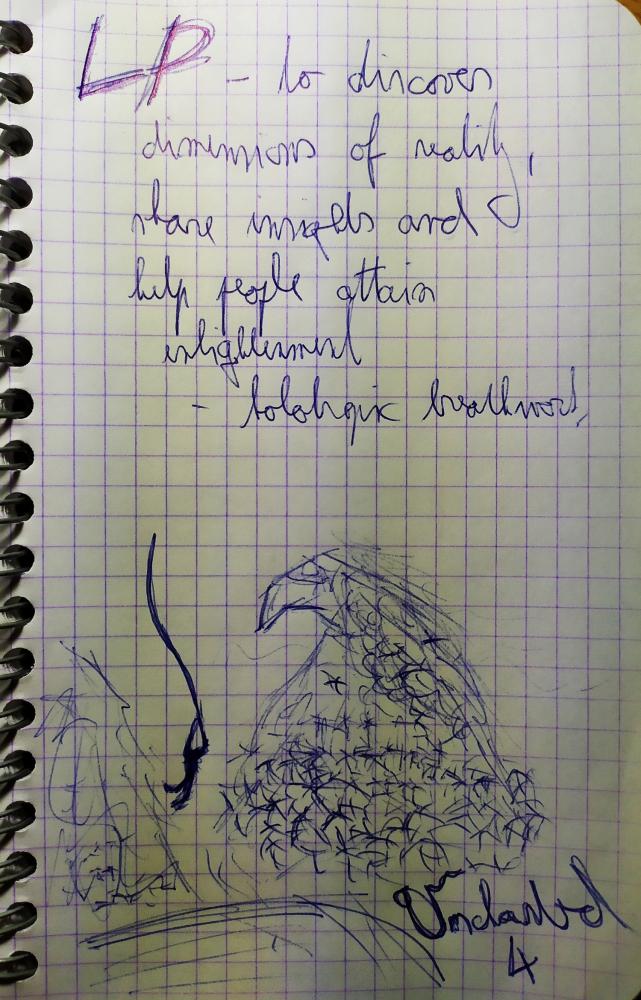 LP - to discover
dimensions of reality,
share insights and
help people attain
enlightenment
- holotropic breathwork,
Uncharted
4